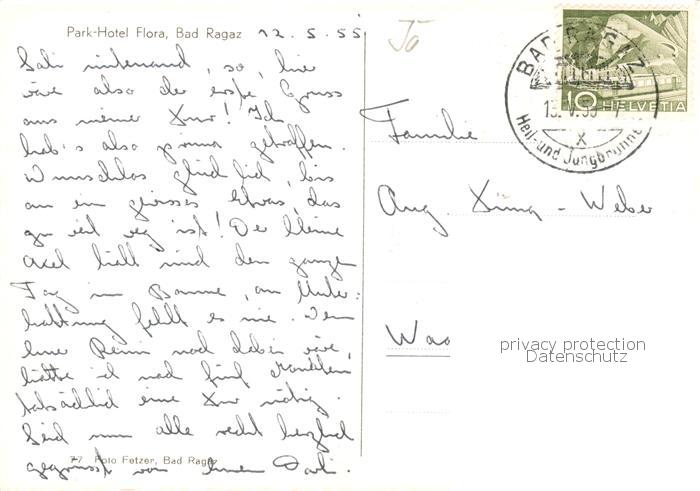 Park-Hotel Flora, Bad Ragaz 12.5.55
Sali mitenand, so, hier
wäre also der erste Gruss
aus meiner Kur! Ich
hab's also prima getroffen.
Wunschlos glücklich, bis
an ein gewisses Etwas, das
zu weit weg ist! Der kleine
Axel hält mich den ganzen
Tag im Banne, an Unter-
haltung fehlt es nie. Wenn
hätte ich nach fünf
tatsächlich eine Kur nötig.
Seid nun alle recht herzlich
77 Foto Fetzer, Bad Ragaz
gegrüsst von
BAD RAGAZ
13.V.55
X
Heil- und Jungbrunnen
10 HELVETIA
Familie
Aug. - Weber
privacy protection
Datenschutz